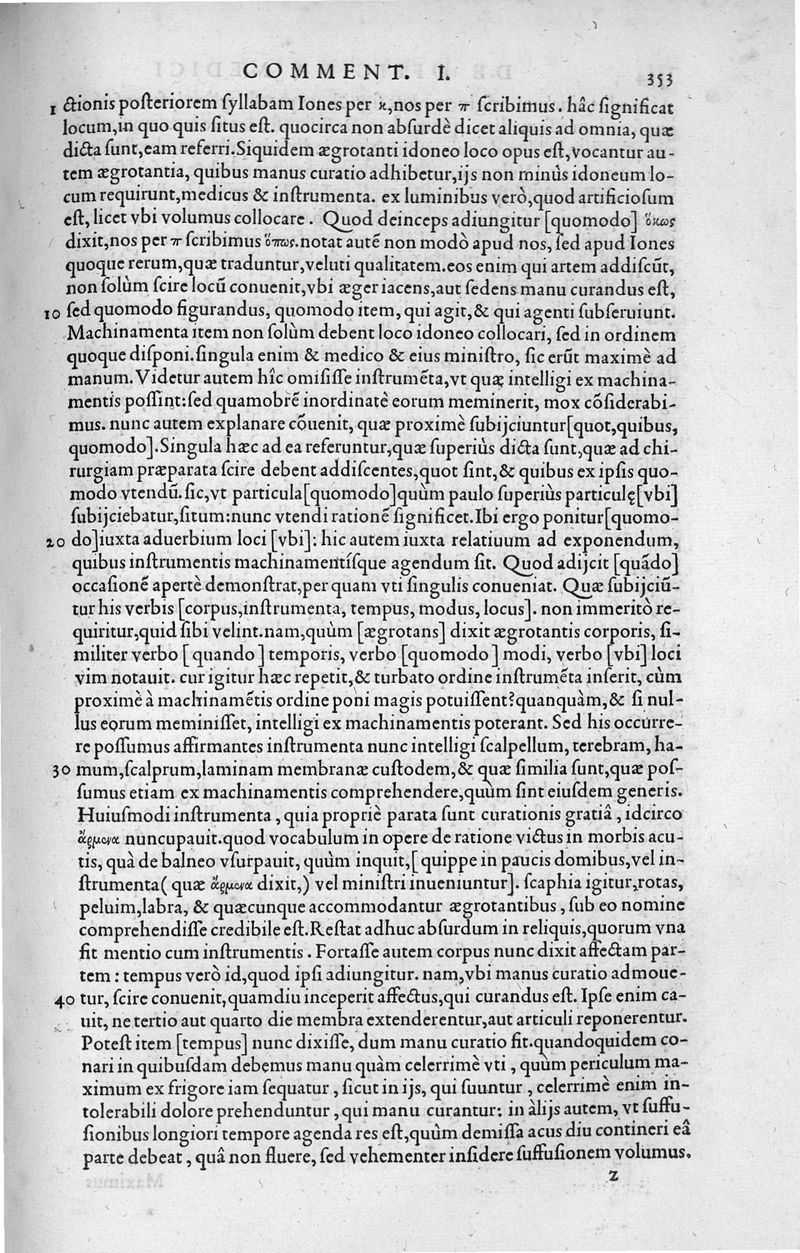 COMMENT. I. 353
1 ctionis posteriorem syllabam Iones per ϰ,nos per π scribimus. hâc significat
locum,in quo quis situs est. quocirca non absurdè dicet aliquis ad omnia, quæ
dicta sunt,eam referri.Siquidem ægrotanti idoneo loco opus est,vocantur au-
tem ægrotantia, quibus manus curatio adhibetur,ijs non minùs idoneum lo-
cum requirunt,medicus & instrumenta. ex luminibus verò,quod artificiosum
est, licet vbi volumus collocare. Quod deinceps adiungitur [quomodo] ὅκως
dixit,nos per π scribimus ὅπως.notat autē non modò apud nos, sed apud Iones
quoque rerum,quæ traduntur,veluti qualitatem.eos enim qui artem addiscūt,
non solùm scire locū conuenit,vbi æger iacens,aut sedens manu curandus est,
10 sed quomodo figurandus, quomodo item, qui agit,& qui agenti subseruiunt.
Machinamenta item non solùm debent loco idoneo collocari, sed in ordinem
quoque disponi.singula enim & medico & eius ministro, sic erūt maximè ad
manum.Videtur autem hîc omisisse instrumēta,vt quæ intelligi ex machina-
mentis possint:sed quamobrē inordinatè eorum meminerit, mox cōsiderabi-
mus. nunc autem explanare cōuenit, quæ proximè subijciuntur[quot,quibus,
quomodo].Singula hæc ad ea referuntur,quæ superiùs dicta sunt,quæ ad chi-
rurgiam præparata scire debent addiscentes,quot sint,& quibus ex ipsis quo-
modo vtendū.sic,vt particula[quomodo]quùm paulo superiùs particulę[vbi]
subijciebatur,situm:nunc vtendi rationē significet.Ibi ergo ponitur[quomo-
20 do]iuxta aduerbium loci [vbi]: hic autem iuxta relatiuum ad exponendum,
quibus instrumentis machinamentísque agendum sit. Quod adijcit [quādo]
occasionē apertè demonstrat,per quam vti singulis conueniat. Quæ subijciū-
tur his verbis [corpus,instrumenta, tempus, modus, locus]. non immeritò re-
quiritur,quid sibi velint.nam,quùm [ægrotans] dixit ægrotantis corporis, si-
militer verbo [ quando ] temporis, verbo [quomodo ] modi, verbo [vbi] loci
vim notauit. cur igitur hæc repetit,& turbato ordine instrumēta inserit, cùm
proximè à machinamētis ordine poni magis potuissent?quanquàm,& si nul-
lus eorum meminisset, intelligi ex machinamentis poterant. Sed his occurre-
re possumus affirmantes instrumenta nunc intelligi scalpellum, terebram, ha-
30 mum,scalprum,laminam membranæ custodem,& quæ similia sunt,quæ pos-
sumus etiam ex machinamentis comprehendere,quùm sint eiusdem generis.
Huiusmodi instrumenta, quia propriè parata sunt curationis gratiâ, idcirco
ἄρμενα nuncupauit.quod vocabulum in opere de ratione victus in morbis acu-
tis, quà de balneo vsurpauit, quùm inquit,[ quippe in paucis domibus,vel in-
strumenta( quæ ἄρμενα dixit,) vel ministri inueniuntur]. scaphia igitur,rotas,
peluim,labra, & quæcunque accommodantur ægrotantibus, sub eo nomine
comprehendisse credibile est.Restat adhuc absurdum in reliquis,quorum vna
fit mentio cum instrumentis. Fortasse autem corpus nunc dixit affectam par-
tem : tempus verò id,quod ipsi adiungitur. nam,vbi manus curatio admoue-
40 tur, scire conuenit,quamdiu inceperit affectus,qui curandus est. Ipse enim ca-
uit, ne tertio aut quarto die membra extenderentur,aut articuli reponerentur.
Potest item [tempus] nunc dixisse, dum manu curatio fit.quandoquidem co-
nari in quibusdam debemus manu quàm celerrimè vti, quùm periculum ma-
ximum ex frigore iam sequatur, sicut in ijs, qui suuntur, celerrimè enim in-
tolerabili dolore prehenduntur, qui manu curantur: in àlijs autem, vt suffu-
sionibus longiori tempore agenda res est,quùm demissa acus diu contineri eâ
parte debeat, quâ non fluere, sed vehementer insidere suffusionem volumus.
Z